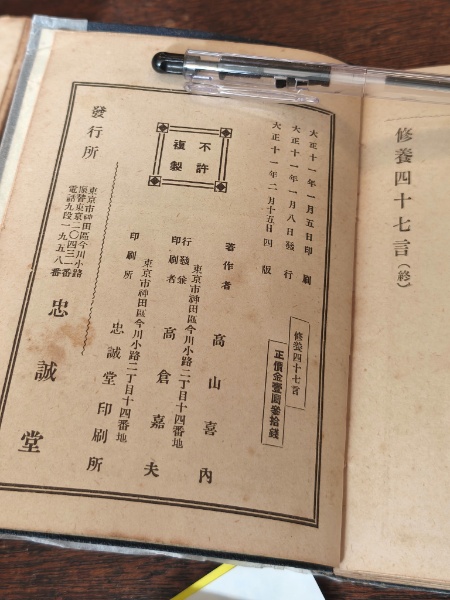 修養四十七言（終）
大正十一年一月五日印刷
大正十一年一月八日發行
大正十一年二月十五日四版
不許
複製
修養四十七言
正價金壹圓參拾錢
著作者 高山喜內
東京市神田區今川小路二丁目十四番地
發行兼
印刷者 高倉嘉夫
東京市神田區今川小路二丁目十四番地
印刷所 忠誠堂印刷所
發行所
東京市神田區今川小路
振替東京二〇四三一番
電話九段一九五八番
忠誠堂